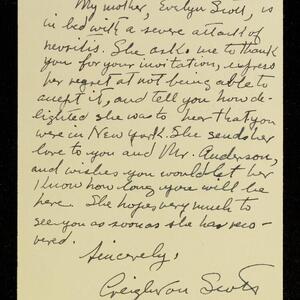 My mother, Evelyn Scott, is
in bed with a severe attack of
neuritis. She asks me to thank
you for your invitation, express
her regret at not being able to
accept it, and tell you how de-
lighted she was to hear that you
were in New York. She sends her
love to you and Mr. Anderson,
and wishes you would let her
know how long you will be
here. She hopes very much to
see you as soon as she has reco-
vered.
Sincerely,
Creighton Scott